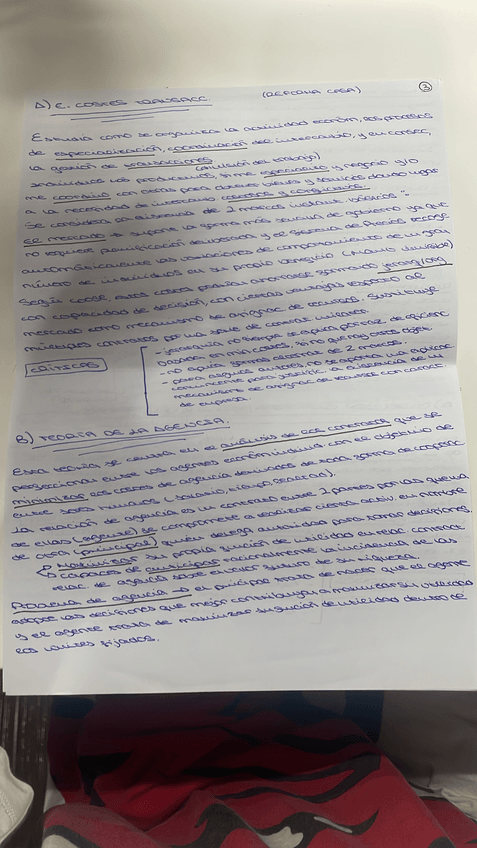 ③
A) E. COSTES TRANSACC (REFORMA COASE)
Estudia como se organiza la actividad económ, los procesos
de especialización, coordinación del intercambio, y en consec,
la gestión de transacciones (división de trabajo)
Individuos no productivos, si me especializo y negocio y/o
me coordino con otros para obtener bienes y servicios dando lugar
a la necesidad de intercambio costoso y conflictivo.
Se considera la existencia de 2 marcos instituc básicos:
El mercado → supone la forma más sencilla de gobierno ya que
no requiere planificación deliberada y el sistema de precios recoge
automáticamente las variaciones de comportamiento de un gran
número de individuos en su propio beneficio (mano invisible)
Según Coase, estos costes pueden ahorrarse formando jerarq/org
con capacidad de decisión, con ciertas ventajas respecto al
mercado como mecanismo de asignac de recursos. Sustituye
múltiples contratos por una serie de contrat unitarios.
CRÍTICAS
- jerarquía no siempre se aplica por raz. de eficienc
basada en min costes, sino que hay otros objet.
- no aplica formas alternat de 2 marcos.
- para algunos autores, no se aporta una explicac
convincente para justific. la existencia de un
mecanismo de asignac de recursos con caract
de empresa.
B) TEORÍA DE LA AGENCIA.
Esta teoría se centra en el análisis de los contratos que se
perfeccionan entre los agentes económ individ con el objetivo de
minimizar los costes de agencia derivados de toda forma de cooperac
entre seres humanos (salario, etapa gerencial).
La relación de agencia es un contrato entre 2 partes por las que una
de ellas (agente) se compromete a realizar cierta activ. en nombre
de otra (principal) quien delega autoridad para tomar decisiones.
↳ Maximizar su propia función de utilidad en relac. contract
capaces de anticipar racionalmente la incidencia de las
relac de agencia sobre el valor futuro de su riqueza.
Problema de agencia → el principal trata de hacer que el agente
adopte las decisiones que mejor contribuyan a maximizar su utilidad
y el agente trata de maximizar su función de utilidad dentro de
los límites fijados.